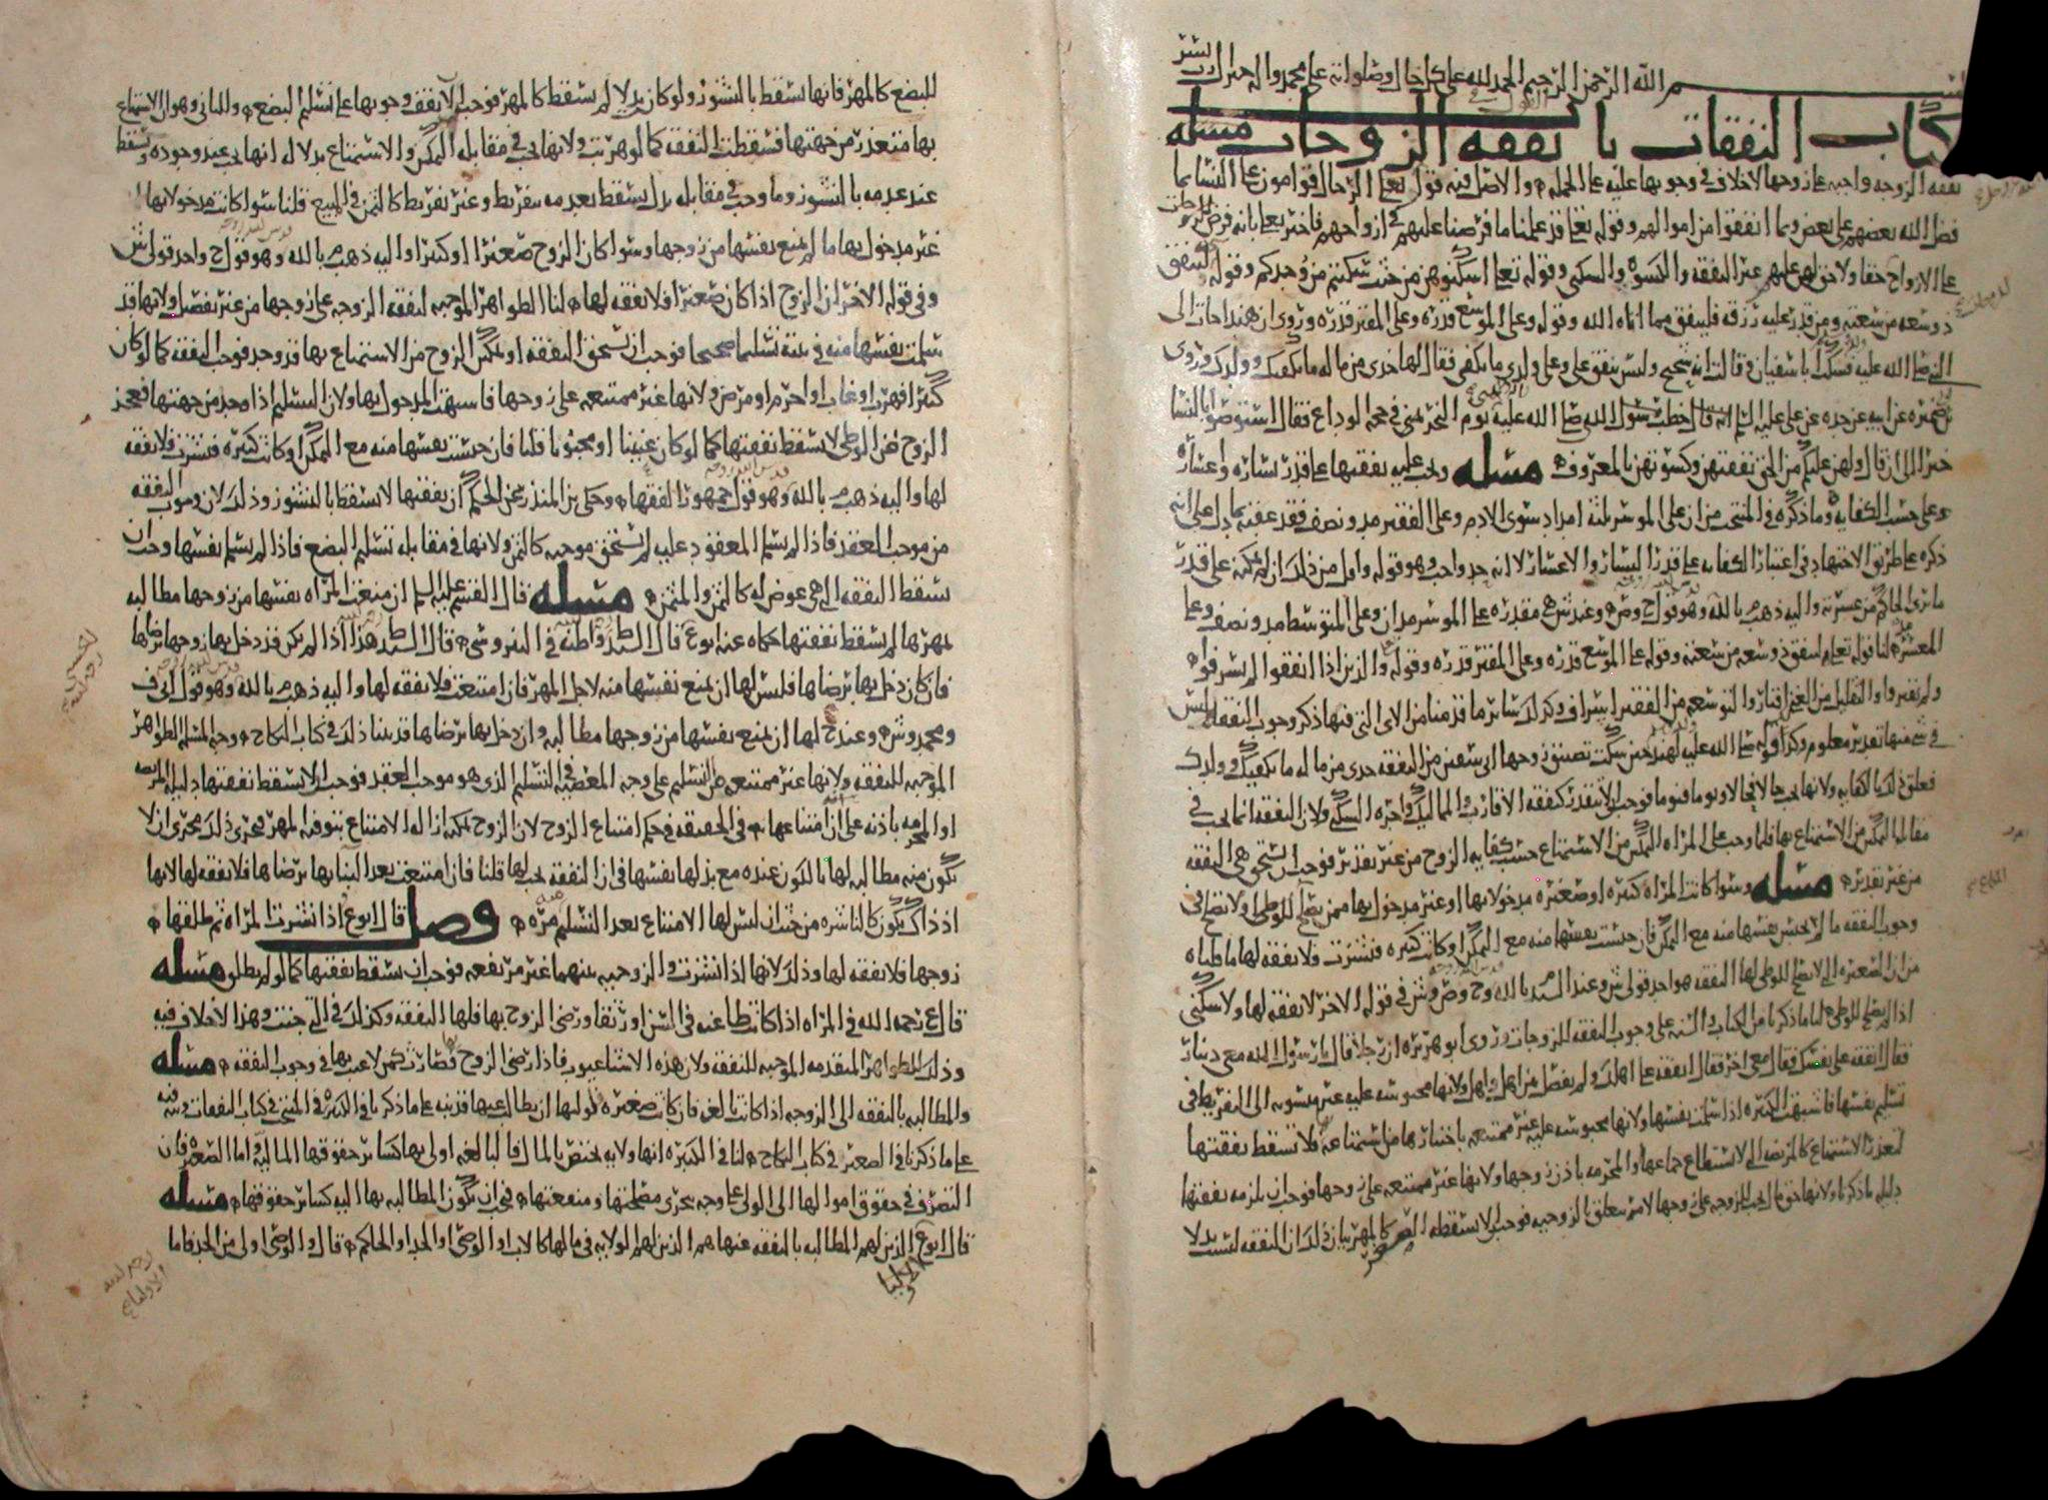 بسم الله الرحمن الرحيم الحمد لله على كل حال وصلواته على محمد واله خير ال رب يسر
كتاب النفقات باب نفقه الزوجات مسله
نفقه الزوجه واجبه على زوجها لا خلاف في وجوبها عليه على الجمله والاصل فيه قول الله تعلى الرجال قوامون على النسا بما
فضل الله بعضهم على بعض وبما انفقوا من اموالهم وقوله تعلى قد علمنا ما فرضنا عليهم في ازواجهم فاخبر تعلى بانه فرض للزوجات
على الازواج حقا ولا حق لهن عليهم غير النفقه والكسوه والسكنى وقوله تعلى اسكنوهن من حيث سكنتم من وجدكم وقوله لينفق
ذو سعه من سعته ومن قدر عليه رزقه فلينفق مما اتاه الله وقوله وعلى الموسع قدره وعلى المقتر قدره وروي ان هندا جات الى
النبي صلى الله عليه فشكت ابا سفيان وقالت انه شحيح وليس ينفق علي وعلى ولدي ما يكفي فقال لها خذي من ماله ما يكفيك وولدك وروى
بن ضميره عن ابيه عن جده عن علي عليه السلم انه قال خطب رسول الله صلى الله عليه يوم النحر بمنى في حجه الوداع فقال استوصوا بالنسا
خيرا الى ان قال ولهن عليكم من الحق نفقتهن وكسوتهن بالمعروف مسله وتجب عليه نفقتها على قدر يساره واعساره
وعلى حسب الكفايه وما ذكره في المنتخب من ان على الموسر ثلثه امداد سوى الادم وعلى الفقير مد ونصف فقد عقبه بما يدل على انه
ذكره على طريق الاجتهاد في اعتبار الكفايه على قدر اليسار والاعسار لا انه حد واجب وهو قوله واقل من ذلك ان لم يمكنه على قدر
ما يرى الحاكم من عسرته واليه ذهب م بالله وهو قول ح وص وعند ش هي مقدره على الموسر مدان وعلى المتوسط مد ونصف وعلى
المعسر مد لنا قوله تعلى لينفق ذو سعه من سعته وقوله على الموسع قدره وعلى المقتر قدره وقوله والذين اذا انفقوا لم يسرفوا
ولم يقتروا والتقليل من الغني اقتار والتوسعه من الفقير اسراف وكذلك سائر ما قدمنا من الاي التي فيها ذكر وجوب النفقه ليس
في شي منها تقدير معلوم وكذا قوله صلى الله عليه لهند حين شكت تضييق زوجها ابي سفين من النفقه خذي من ماله ما يكفيك وولدك
فعلق ذلك بالكفايه ولانها تجب حالا فحالا ويوما فيوما فوجب الا تتقدر كنفقه الاقارب والمماليك واجره السكنى ولان النفقه انما تجب في
مقابله التمكين من الاستمتاع بها فلما وجب على المراه التمكين من الاستمتاع حسب كفايه الزوج من غير تقدير فوجب ان تستحق هي النفقه
من غير تقدير مسله وسوا كانت المراه كبيره او صغيره مدخولا بها او غير مدخول بها ممن يصلح للوطي او لا تصلح في
وجوب النفقه ما لم تحبس نفسها منه مع التمكن فان حبست نفسها منه مع التمكن او كانت كبيره فنشزت فلا نفقه لها ما قلناه
من ان الصغيره التي لا تصلح للوطي لها النفقه هو احد قولي ش وعند السيد م بالله وح وص وش في قوله الاخر لا نفقه لها ولا سكنى
اذا لم تصلح للوطي لنا ما ذكرنا من الكتاب والسنه على وجوب النفقه للزوجات وروى ابو هريره ان رجلا قال يا رسول الله معي دينار
فقال انفقه على نفسك فقال معي اخر فقال انفقه على اهلك ولم يفصل من اهل واهل ولانها محبوسه عليه غير منسوبه الى التفريط في
تسليم نفسها فاشبهت الكبيره اذا سلمت نفسها ولانها محبوسه عليه غير ممتنعه باختيارها من استمتاعه فلا تسقط نفقتها
لتعذر الاستمتاع كالمريضه التي لا تستطاع جماعها والمحرمه باذن زوجها ولانها غير ممتنعه على زوجها فوجب ان تلزمه نفقتها
دليله ما ذكرنا ولانها حق مالي تجب للزوجه على زوجها لامر يتعلق بالزوجيه فوجب الا يسقطه الصغر كالمهر بيان ذلك ان النفقه ليست بدلا
للبضع كالمهر فانها تسقط بالنشوز ولو كان بدلا لم تسقط كالمهر فوجب الا يقف وجوبها على تسليم البضع والثاني وهو ان الاستمتاع
بها متعذر من جهتها فسقطت النفقه كما لو هربت ولانها تجب في مقابله التمكن والاستمتاع بدلاله انها تجب عند وجوده وتسقط
عند عدمه بالنشوز وما وجب في مقابله بدل يسقط بعدمه بتفريط وغير تفريط كالثمن في المبيع قلنا سوا كانت مدخولا بها او
غير مدخول بها ما لم تمنع نفسها من زوجها وسوا كان الزوج صغيرا او كبيرا واليه ذهب م بالله وهو قول ح واحد قولي ش
وفي قوله الاخر ان الزوج اذا كان صغيرا فلا نفقه لها لنا الظواهر الموجبه لنفقه الزوجه على زوجها من غير تفصيل ولانها قد
سلمت نفسها منه في بيته تسليما صحيحا فوجب ان تستحق النفقه او تمكين الزوج من الاستمتاع بها قد وجد فوجب النفقه كما لو كان
كبيرا فهرب او غاب او احرم او مرض ولانها غير ممتنعه على زوجها فاشبهت المدخول بها ولان التسليم اذا وجد من جهتها فعجز
الزوج عن الوطي لا يسقط نفقتها كما لو كان عنينا او مجبوبا قلنا فان حبست نفسها منه مع التمكن او كانت كبيره فنشزت فلا نفقه
لها واليه ذهب م بالله وهو قول جمهور الفقها وحكى بن المنذر عن الحكم ان نفقتها لا تسقط بالنشوز وذلك لان وجوب النفقه
من موجب العقد فاذا لم يسلم المعقود عليه لم تستحق موجبه كالثمن ولانها في مقابله تسليم البضع فاذا لم تسلم نفسها وجب ان
تسقط النفقه التي هي عوض له كالثمن والمثمن مسله قال القسم عليه السلم ان منعت المراه نفسها من زوجها مطالبه
بمهرها لم تسقط نفقتها حكاه عنه ابو ع قال السيد ط واظنه في النيروسي قال السيد هذا اذا لم يكن قد دخل بها زوجها برضاها
فان كان دخل بها برضاها فليس لها ان تمنع نفسها منه لاجل المهر فان امتنعت فلا نفقه لها واليه ذهب م بالله وهو قول ابي ف
ومحمد وش وعند ح لها ان تمنع نفسها من زوجها مطالبه وان دخل بها برضاها قد بينا ذلك في كتاب النكاح وجه المسله الظواهر
الموجبه للنفقه ولانها غير ممتنعه من التسليم على وجه المعصيه في التسليم الذي هو موجب العقد فوجب الا تسقط نفقتها دليله المريضه
او المحرمه باذنه على ان امتناعها في الحقيقه في حكم امتناع الزوج لان الزوج يمكنه ازاله الامتناع بتوفيه المهر فجرى ذلك مجرى ان لا
تكون منه مطالبه لها بالكون عنده مع بذلها نفسها في ان النفقه تجب لها قلنا فان امتنعت بعد البنا بها برضاها فلا نفقه لها لانها
اذ ذاك تكون كالناشزه من حيث ان ليس لها الامتناع بعد التسليم مره فصل قال ابو ع اذا نشزت المراه ثم طلقها
زوجها فلا نفقه لها وذلك لانها اذا نشزت والزوجيه بينهما غير مرتفعه فوجب ان تسقط نفقتها كما لو لم يطلق مسله
قال ع رحمه الله في المراه اذا كانت طاعنه في السن او رتقا ورضي الزوج بها فلها النفقه وكذلك في التي جنت وهذا لا خلاف فيه
وذلك للظواهر المتقدمه الموجبه للنفقه ولان هذه الاشيا عيوب فاذا رضي الزوج بها فصارت كمن لا عيب بها في وجوب النفقه مسله
والمطالبه بالنفقه الى الزوجه اذا كانت بالغه فان كانت صغيره فوليها ان يطالب عنها قد نبه على ما ذكرنا في الكبيره في المنتخب في كتاب النفقات ونبه فيه
على ما ذكرنا في الصغير في كتاب النكاح لنا في الكبيره انها ولايه تختص بالمال فالبالغه اولى بها كسائر حقوقها الماليه واما الصغيره فان
التصرف في حقوق اموالها الى الولي على وجه يجري مصلحتها ومنفعتها فيجب ان تكون المطالبه بها اليه كسائر حقوقها مسله
قال ابو ع الذين لهم المطالبه بالنفقه عنها هم الذين لهم الولايه في مالها كالاب والوصي او الجد او الحاكم قال والوصي اولى من الجد فاما
الاوليا